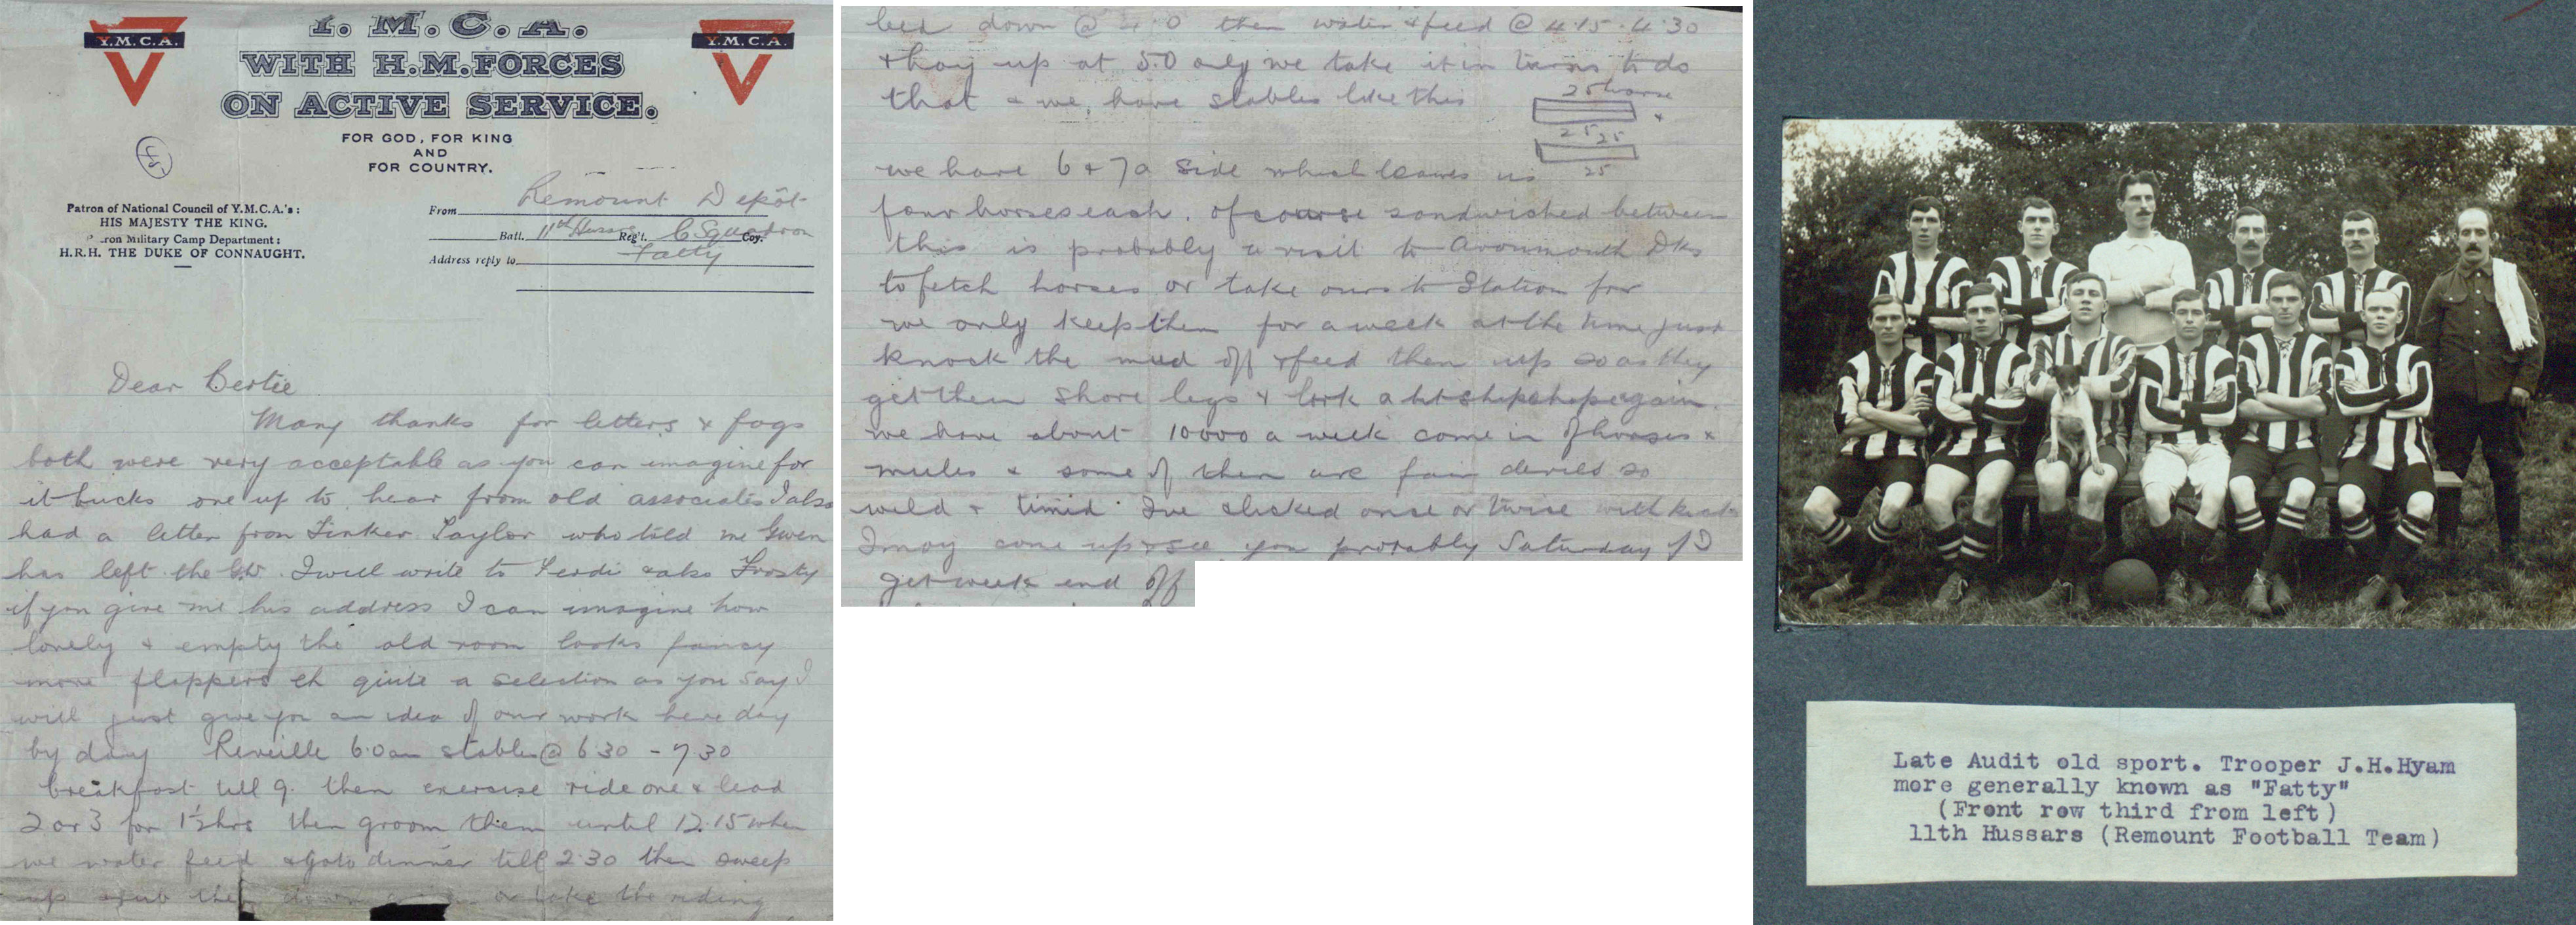 Y.M.C.A.
Y.M.C.A.
Y.M.C.A.
WITH H.M.FORCES
ON ACTIVE SERVICE.
FOR GOD, FOR KING
AND
FOR COUNTRY.
Patron of National Council of Y.M.C.A.'s:
HIS MAJESTY THE KING.
Patron Military Camp Department:
H.R.H. THE DUKE OF CONNAUGHT.
From Remount Depôt
Batt. 11th Hussars Reg't. C Squadron Coy.
Address reply to Fatty
Dear Bertie
Many thanks for letters & fags
both were very acceptable as you can imagine for
it bucks one up to hear from old associates I also
had a letter from Tinker Taylor who told me Gwen
has left the GW. I will write to Ferdi & also Frosty
if you give me his address I can imagine how
lonely & empty the old room looks fancy
more flappers eh quite a selection as you say I
will just give you an idea of our work here day
by day Reveille 6.0 am stables @ 6.30 - 7.30
breakfast till 9. then exercise ride one & lead
2 or 3 for 1½ hrs then groom them until 12.15 when
we water feed & go to dinner till 2.30 then sweep
up scrub them down or take the riding
bed down @ 4.0 then water & feed @ 4.15 - 4.30
& hay up at 5.0 only we take it in turns to do
that & we have stables like this
25 horse
25 25
25
we have 6 & 7 a side which leaves us
four horses each. of course sandwiched between
this is probably a visit to Avonmouth Dks
to fetch horses or take ours to Station for
we only keep them for a week at the time just
knock the mud off & feed them up so as they
get their shore legs & look a bit shipshape again.
we have about 10000 a week come in of horses &
mules & some of them are fair devils so
wild & timid. Ive clicked once or twice with kicks
I may come up & see you probably Saturday if I
get week end off
Late Audit old sport. Trooper J.H.Hyam
more generally known as "Fatty"
(Front row third from left)
11th Hussars (Remount Football Team)